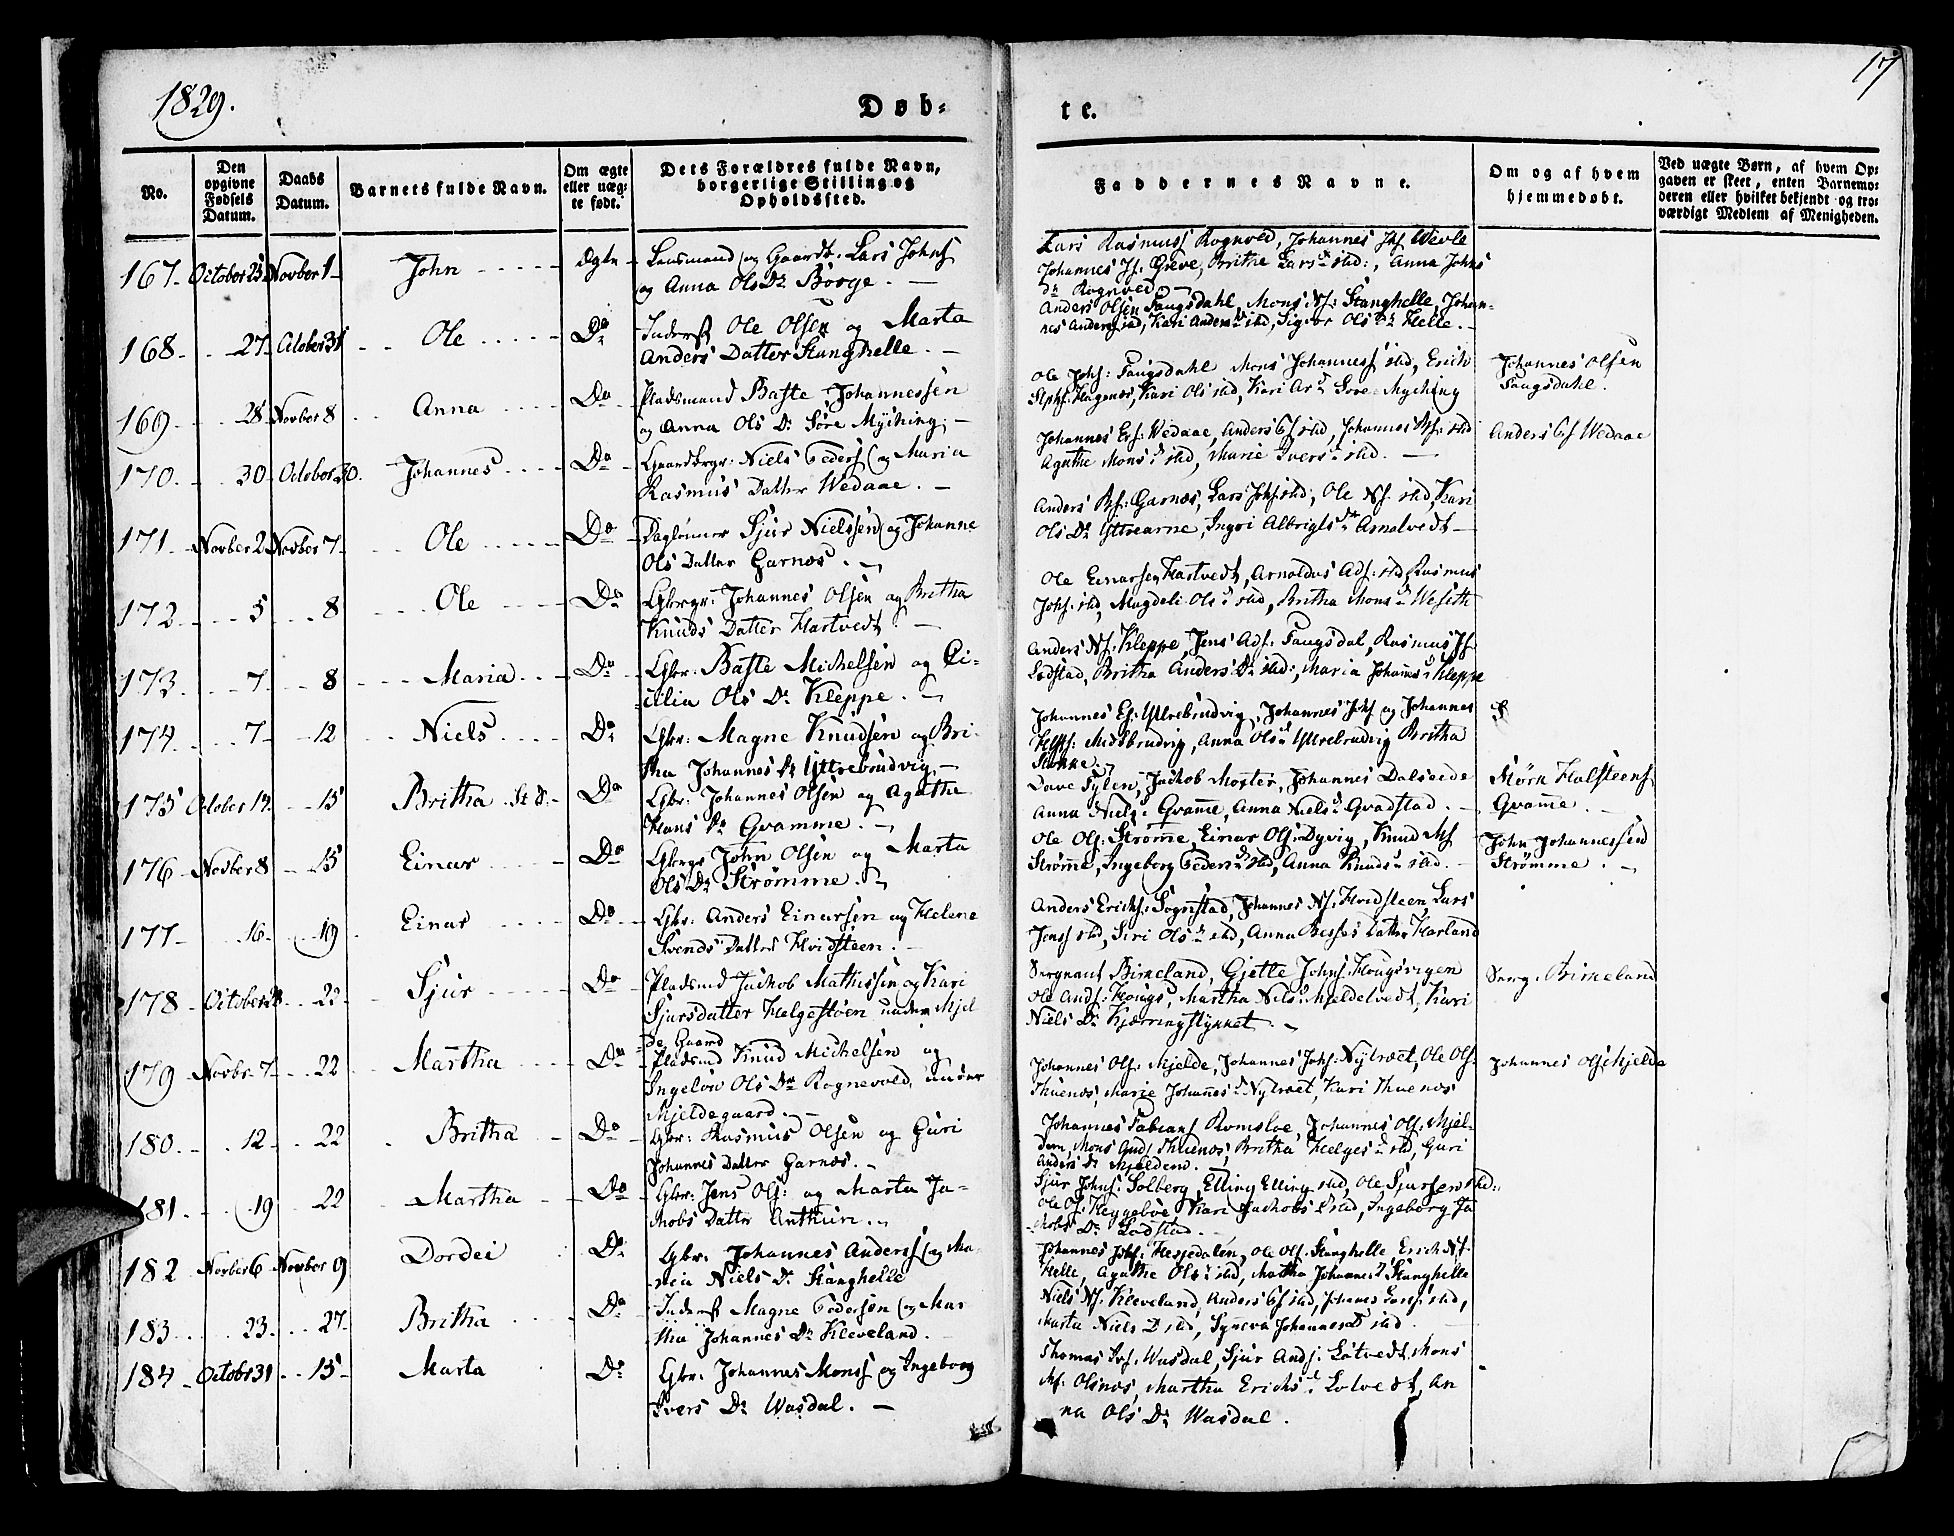 1829.
Døb-
te.
17
No.
Den opgivne Fødsels Datum.
Daabs Datum.
Barnets fulde Navn.
Om ægte eller uæg- te født.
Dets Forældres fulde Navn, borgerlige Stilling og Opholdssted.
Faddernes Navne.
Om og af hvem hjemmedøbt.
Ved uægte Børn, af hvem Op- gaven er skeet, enten Barnemo- deren eller hvilket bekjendt og tro- værdigt Medlem af Menigheden.
167. October 25. Novber 1 John Ægte Lensmand og Gaardb. Lars Johns
og Anna Ols Dr Børge.
Lars Rasmuss Rognved, Johannes Jhs Wevle
Johannes Js: Greve, Brithe Lars d. istd:, Anna Johns
Dr Rogneved
168 27. October 31 Ole Do Inderst Ole Olsen og Marta
Anders Datter Stanghelle.
Anders Olsen Faugsdahl, Mons Ns: Stanghelle, Johan-
nes Anders istd, Kari Anders istd, Sigvor Ols Dr Helle.
169 28. Novber 8 Anna Do Pladsmand Baste Johannessen
og Anna Ols Dr Søre Myching.
Ole Johs: Faugsdahl Mons Johanness istd, Erich
Hagenes, Kari Ols istd, Kari Søre Myching
Johannes Olsen
Faugsdahl.
170. 30. October 30. Johannes Do Gaardbrgr: Niels Peders og Maria
Rasmus Datter Wedaae.
Johannes Ers: Wedaae, Anders istd, Johannes istd
Agathe Mons istd, Marie Ivers istd.
Anders Wedaae
171 Novber 2 Novber 7 Ole Do Dagleinner Sjur Nielssen og Johanne
Ols Datter Garnæs.
Anders Garnæs, Lars Johs istd, Ole Ns. istd, Kari
Ols Dr Yttrearne, Ingri Albrigts Dr Arnatvedt
172 5 8 Ole Do Gbrgr: Johannes Olsen og Britha
Knuds Datter Hartvedt.
Ole Einarsen Hartvedt, Arnoldus Ads: istd, Rasmus
Johs: istd, Magdeli Ols istd, Britha Mons
173 7. 8 Maria Do Gbr: Baste Michelsen og Ci-
cilia Ols Dr Kleppe.
Anders Ns: Kleppe, Jens Ads: Faugsdal, Rasmus Js
Lodstad, Britha Anders Dr istd:, Maria Johannes Kleppe
174 7 12 Niels Do Gbr: Magne Knudsen og Bri-
tha Johannes Dr Yttrebrudvig.
Johannes Es: Yttrebrudvig, Johannes Johs og Johannes
Midtbrudvig, Anna Ols Yttrebrudvig Britha
175 October 19. 15 Britha Do Gbr: Johannes Olsen og Agathe
Hans Dr Gvamme.
Dave Fylen, Jackob Moster, Johannes Dalseide
Anna Niels Gvamme, Anna Niels Gvadstad.
Halsteens
Gvamme.
176 Novber 8 15 Einar Do Gbrgr John Olsen og Marta
Ols Dr Strømme.
Ole Ols: Strømme, Einar Ols: Dyvig, Knud Ms
Strømme, Ingeborg Peders istd, Anna Knuds istd.
John Johannessen
Strømme.
177 16 19 Einar Do Gbr: Anders Einarsen og Helene
Svends Datter Hvidsteen.
Anders Erichs: Sognstad, Johannes Ns: Hvidsteen, Lars
Jenss istd, Siri Ols istd, Anna Besses Datter Harland
178 October 22 Sjur Do Pladsmd Jackob Mathissen og Kari
Sjursdatter Helgestøen under Mjel
de Gaard
Sergeant Birkeland, Gjetle Johns Hougsvigen
Ole Ands: Hougs, Martha Nils Mjeldetvedt, Kari
Niels Dr Kjærringstykket.
Serg. Birkeland
179 Novbr. 7 22 Martha Do Pladsmd Knud Michelsen og
Ingelev Ols Dr Rognevold, under
Mjeldegaard.
Johannes Ols: Mjelde, Johannes Johs: Nytræet, Ole Ols:
Thuenæs, Marie Johannes Nytræet, Kari Thuenæs
Johannes Ols Mjelde
180. 12 22 Britha Do Gbr: Rasmus Olsen og Guri
Johannes Datter Garnæs.
Johannes Fabians Romsloe, Johannes Ols: Mjel-
dem, Mons Thuenæs, Britha Helges istd, Guri
Anders Dr Mjeldem.
181 19 22 Martha Do Gbr: Jens Ols: og Marta Ja-
kobs Datter Anthun.
Sjur Johns: Solberg, Elling Elling istd, Ole Sjursen istd:
Ole Heggebøe Kari Jackobs D istd, Ingeborg Ja
kobs Dr Lodstad.
182 Novber 6 Novber 9 Dordei Do Gbr: Johannes Anderss og Ma-
ria Niels Dr Stanghelle
Johannes Johs: Hesjedalen, Ole Ols: Stanghelle Erich Ns.
Helle, Agathe Ols istd, Martha Johannes Stanghelle
183 23. 27. Britha Do Inderst Magne Pedersen og Mar
tha Johannes Dr Kleveland.
Niels Ns: Kleveland, Anders istd, Johannes Larss: istd,
Marta Niels D istd, Synneva Johannes D istd.
184 Octobr 31 15 Marta Do Gbr: Johannes Monss og Ingeborg
Ivers Dr Wasdal.
Thomas Ivs: Wasdal, Sjur Ands: Løtvedt, Mons
Olsnæs, Martha Erichs Løtvedt, An
na Ols Dr Wasdal.